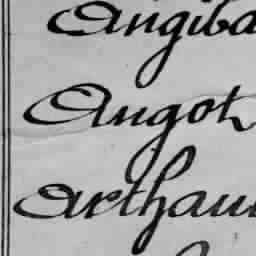 Angiba
Angot
Arthau